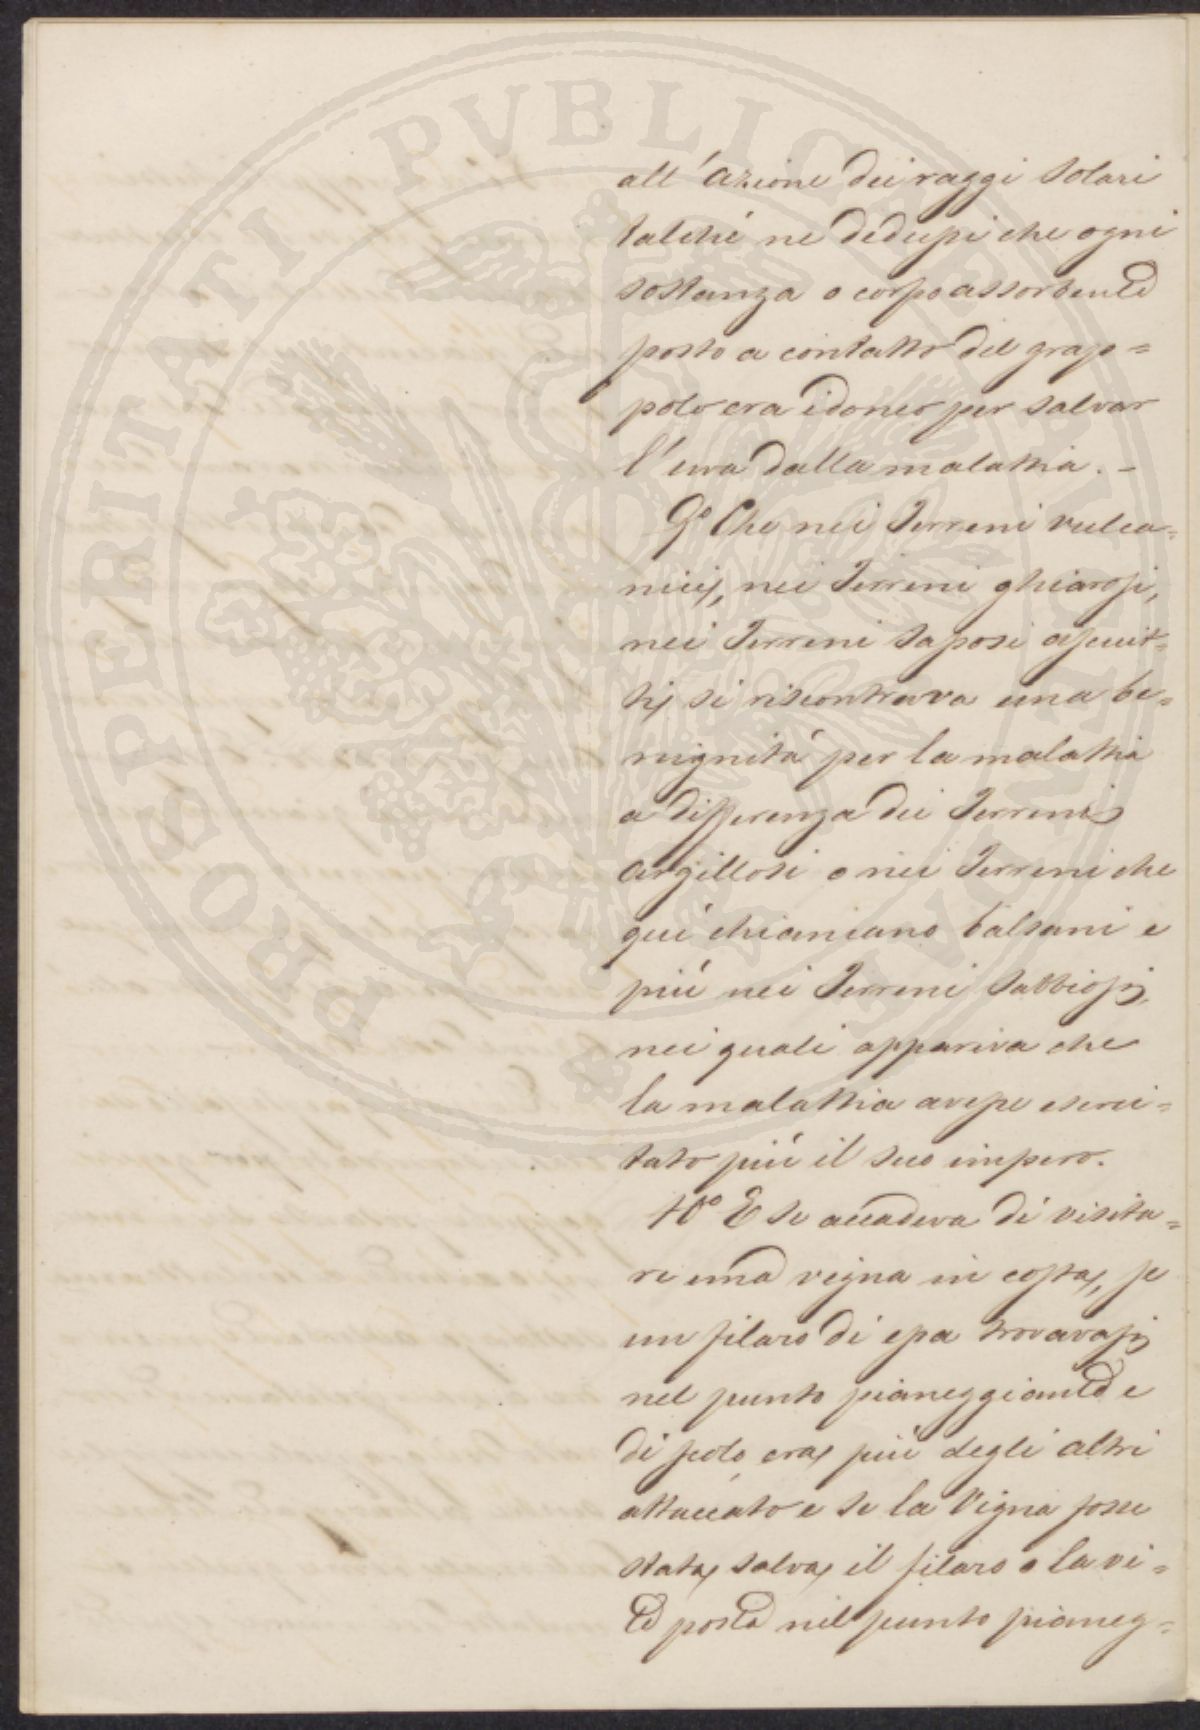 all'azione dei raggi solari
talché ne dedussi che ogni
sostanza o corpo assorbente
posto a contatto del grap=
polo era idoneo per salvar
l'uva dalla malattia. -
9.° Che nei Terreni vulca=
nici, nei Terreni ghiarosi,
nei Terreni saposi asciut=
ti si riscontrava una be=
nignitá per la malattia
a differenza dei Terreni
argillosi o nei Terreni che
qui chiamano balsani e
piú nei Terreni sabbiosi,
nei quali appariva che
la malattia avesse eserci=
tato piú il suo impero.
10.° E se accadeva di visita=
re una vigna in costa, se
un filaro di essa trovavasi
nel punto pianeggiante e
di solo era piú degli altri
attaccato e se la Vigna fosse
stata salva il filaro o la vi=
te posta nel punto pianeg=
PROSPERITATI PVBLICAE